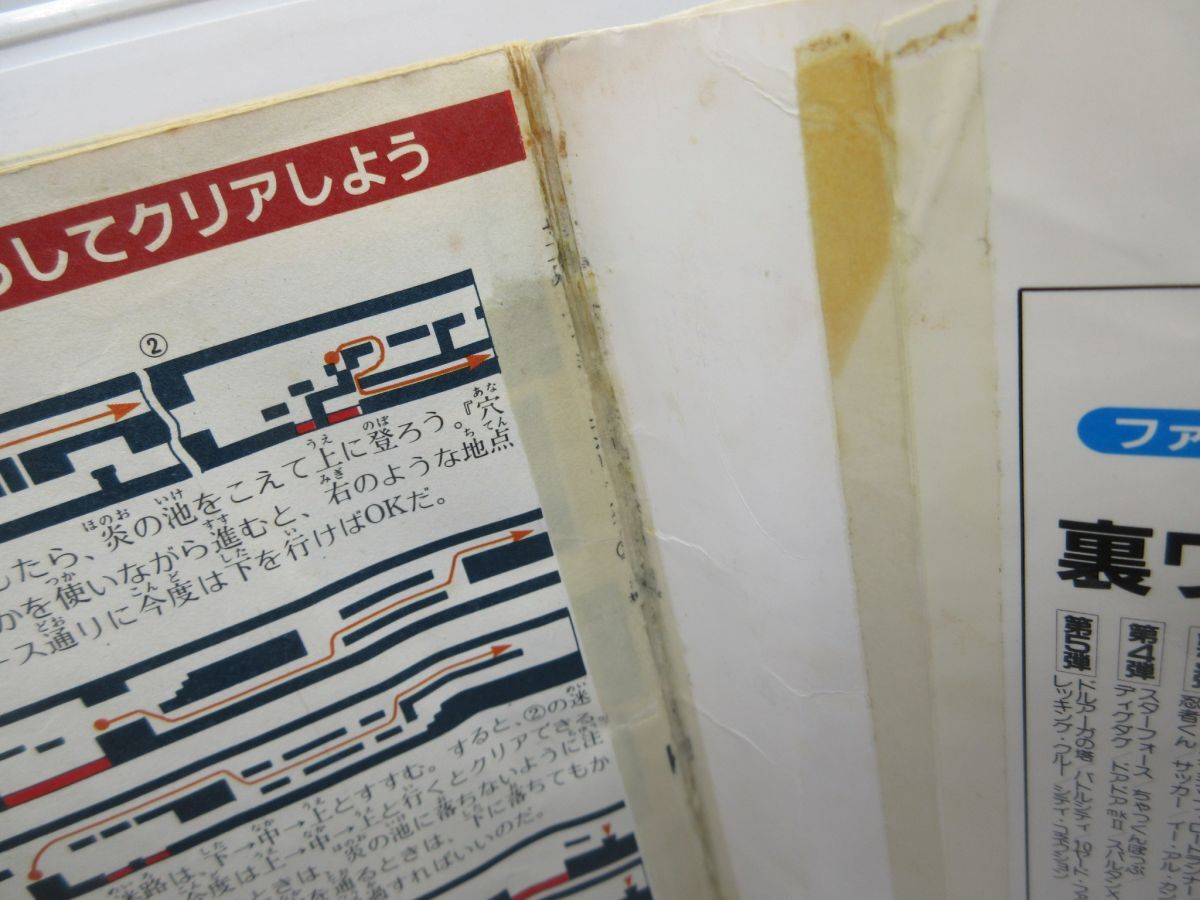 してクリアしよう
②
したら、炎の池をこえて上に登ろう。『穴
かを使いながら進むと、右のような地点
ース通りに今度は下を行けばOKだ。
迷路は、下→中→上とすすむ。すると、②の迷
今度は上→中→上と行くとクリアできる。
ときは、炎の池に落ちないように注
を通るときは、下に落ちてもか
過すればいいのだ。
ファ
裏ワ
第5弾
ドルアーガの塔 バトルシティ
レッキング・クルー シティ・コネクション
第4弾
スターフォース ちゃっくんぽっぷ
ディグダグ スパルタンX
忍者くん サッカー